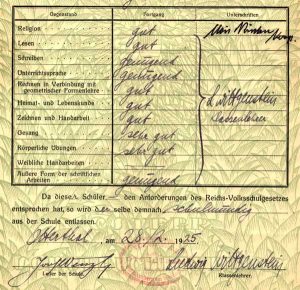 Gegenstand Fortgang Unterschriften
Religion gut
Lesen gut
Schreiben genügend
Unterrichtsprache genügend
Rechnen in Verbindung mit
geometrischer Formenlehre gut
Heimat- und Lebenskunde gut
Zeichnen und Handarbeit gut
Gesang sehr gut
Körperliche Übungen sehr gut
Weibliche Handarbeiten
Äußere Form der schriftlichen
Arbeiten genügend
L. Wittgenstein
Klassenlehrer
Da dieser Schüler — den Anforderungen des Reichs-Volksschulgesetzes
entsprochen hat, so wird derselbe demnach schulmündig
aus der Schule entlassen.
Otterthal, am 28./2. 1925
Leiter der Schule. Ludwig Wittgenstein
Klassenlehrer.